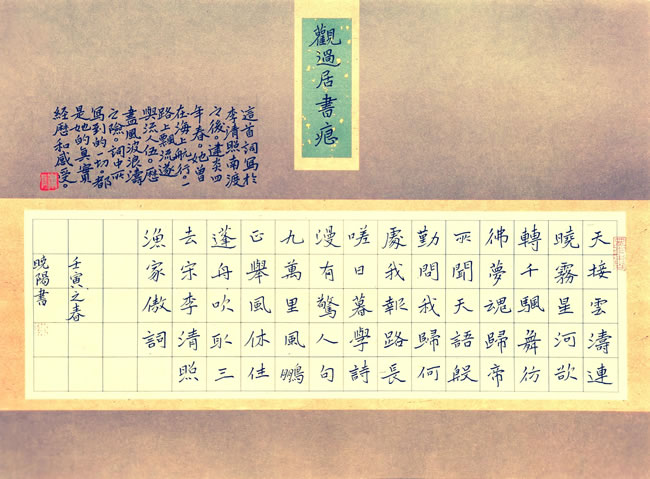 觀過居書痕
這首詞寫於
李清照南渡
之後。建炎四
年春。她曾
在海上航行。一
路上飄流遂
與法人伍。歷
盡風波浪濤
之險。詞中所
寫到的一切。都
是她的真實
經歷和感受。
天接雲濤連
曉霧星河欲
轉千颿舞彷
彿夢魂歸帝
所聞天語殷
勤問我歸何
處我報路長
嗟日暮學詩
漫有驚人句
九萬里風鵬
正舉風休住
蓬舟吹取三
去宋李清照
漁家傲詞
壬寅之春
晓陽書